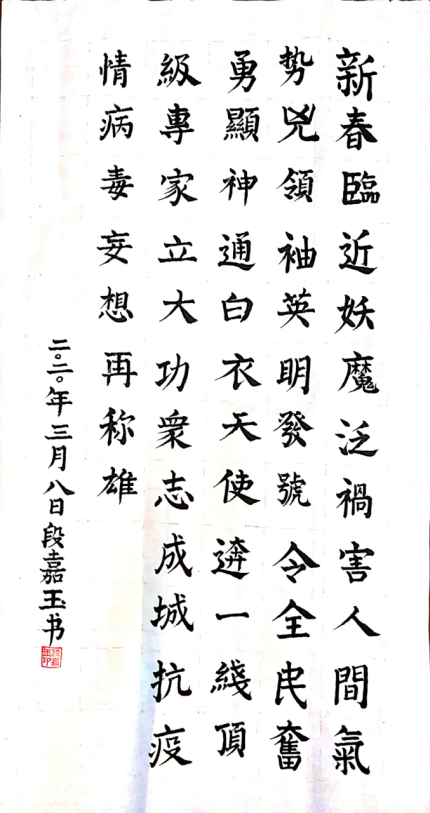 新春臨近妖魔泛禍害人間氣
势兇領袖英明發號令全民奮
勇顯神通白衣天使遴一綫頂
級專家立大功衆志成城抗疫
情病毒妄想再称雄
二〇二〇年三月八日段嘉玉书